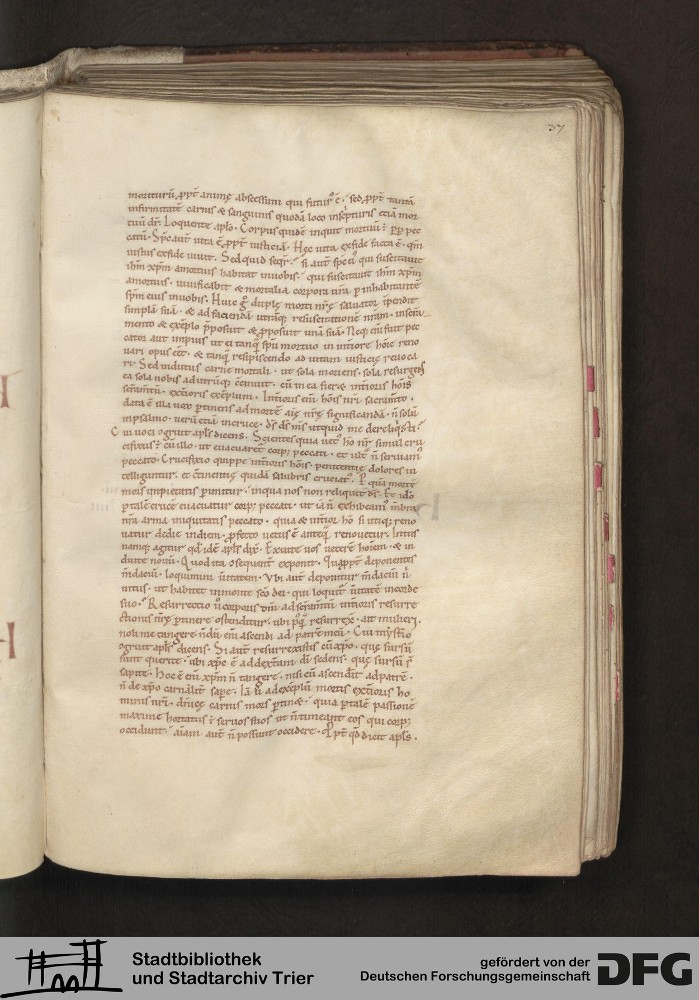 37
morituru̅ ꝓpt̅ anime absc̅essum qui futur᷒ e̅. sed ꝓpt̅ tanta̅
infirmitate̅ carnis & sanguinis quoda̅ loco inscripturis etia̅ mor
tuu̅ dr̅. Loquente aplo̅. Corpus quide̅ inquit mortuu̅ e̅ ꝓp pec
catu̅. Sp̅c aut̅ uita e̅ ꝓpt̅ iusticia̅. Hec uita exfide facta e̅. qm̅
iustus exfide uiuit. Sed quid seqr̅. si aut̅ sp̅c ei᷒ qui suscitauit
ihm̅ xp̅m amortuis habitat inuobis. qui suscitauit ihm̅ xp̅m
amortuis. uiuificabit & mortalia corpora nr̅a ꝑ inhabitante̅
sp̅m eius inuobis. Huic g̊ duple morti nr̅e saluator i̅pendit
simpla̅ sua̅. & ad facienda̅ utra̅q; resuscitatione̅ nr̅am. insacra
mento & exe̅plo p̅posuit & ꝓposuit una̅ sua̅. Neq; eni̅ fuit pec
cator aut impius ut ei ta̅q̅ sp̅u mortuo in int̅iore ho̅ie reno
uari opus e̅et. & ta̅q̅ resipiscendo ad uitam iusticie reuoca
ri. Sed indutus carne mortali. ut sola moriens. sola resurgens
ea sola nobis adutru̅q; c̅cinuit. cu̅ in ea fieret int̅ioris ho̅is
sacram̅tu̅. ext̅ioris exe̅plum. Int̅ioris eni̅ ho̅is nr̅i sacram̅to.
data e̅ illa uox ꝑtinens admorte̅ ai̅e nr̅e significanda̅ n̅ solu̅
inpsalmo. ueru̅ etia̅ incruce. ds̅ ds̅ ms̅ utquid me dereliq̅sti.
Cui uoci c̅gruit apls̅ dicens. Scientes quia uet᷒ ho̅ nr̅ simul cru
cifixus e̅ cu̅ illo. ut euacuaret᷒ corp᷒ peccati. et ult̅ n̅ seruiam᷒
peccato. Crucifixio quippe int̅ioris ho̅is. penitentie dolores in
telliguntur. et c̅tinentie quida̅ salubris cruciat᷒. ꝑ qua̅ morte̅
mors impietatis ꝑimitur. inqua nos non reliquit ds̅. Et ido̅
ꝑ tale̅ cruce̅ euacuatur corp᷒ peccati. ut ia̅ n̅ exhibeam᷒ m̅bra
nr̅a arma iniquitatis peccato. quia & int̅ior ho̅ si utiq; reno
uatur dedie indiem. ꝓfecto uetus e̅ anteq̅ renouetur. Intus
namq; agitur qd̅ ide̅ apls̅ dix̅. Exuite uos uetere̅ ho̅iem. & in
duite nouu̅. Quod ita c̅sequent̅ exponit. Quapropt̅ deponentes
m̅daciu̅. loquimini u̅itatem. Vbi aut̅ deponitur m̅daciu̅ n̅
intus. ut habitet inmonte sc̅o dei. qui loquit᷒ u̅itate̅ incorde
suo. Resurrectio u̅ corporis dni̅ adsacram̅tu̅ int̅ioris resurre
ctionis nr̅e ꝑtinere ostenditur. ubi p᷒q̅ resurrexit. ait mulieri.
noli me tangere. nu̅du̅ eni̅ ascendi ad patre̅ meu̅. Cui myst̅io
c̅gruit apls̅ dicens. Si aut̅ resurrexistis cu̅ xp̅o. que sursu̅
sunt querite. ubi xp̅c e̅ addexta̅m di̅ sedens. que sursu̅ s̅
sapite. Hoc e̅ eni̅ xp̅m n̅ tangere. nisi cu̅ ascendit adpatre̅.
n̅ de xp̅o carnalit̅ sape̅. Ia̅ u̅ adexe̅plu̅ mortis ext̅ioris ho
minis nr̅i. dn̅ice carnis mors ꝑtinet. quia ꝑ tale̅ passione̅
maxime hortatus e̅ seruos suos ut n̅ timeant eos qui corp᷒
occidunt. ai̅am aut̅ n̅ possunt occidere. Propt̅ qd̅ dicit apls̅.
Stadtbibliothek
und Stadtarchiv Trier
gefördert von der
Deutschen Forschungsgemeinschaft
DFG